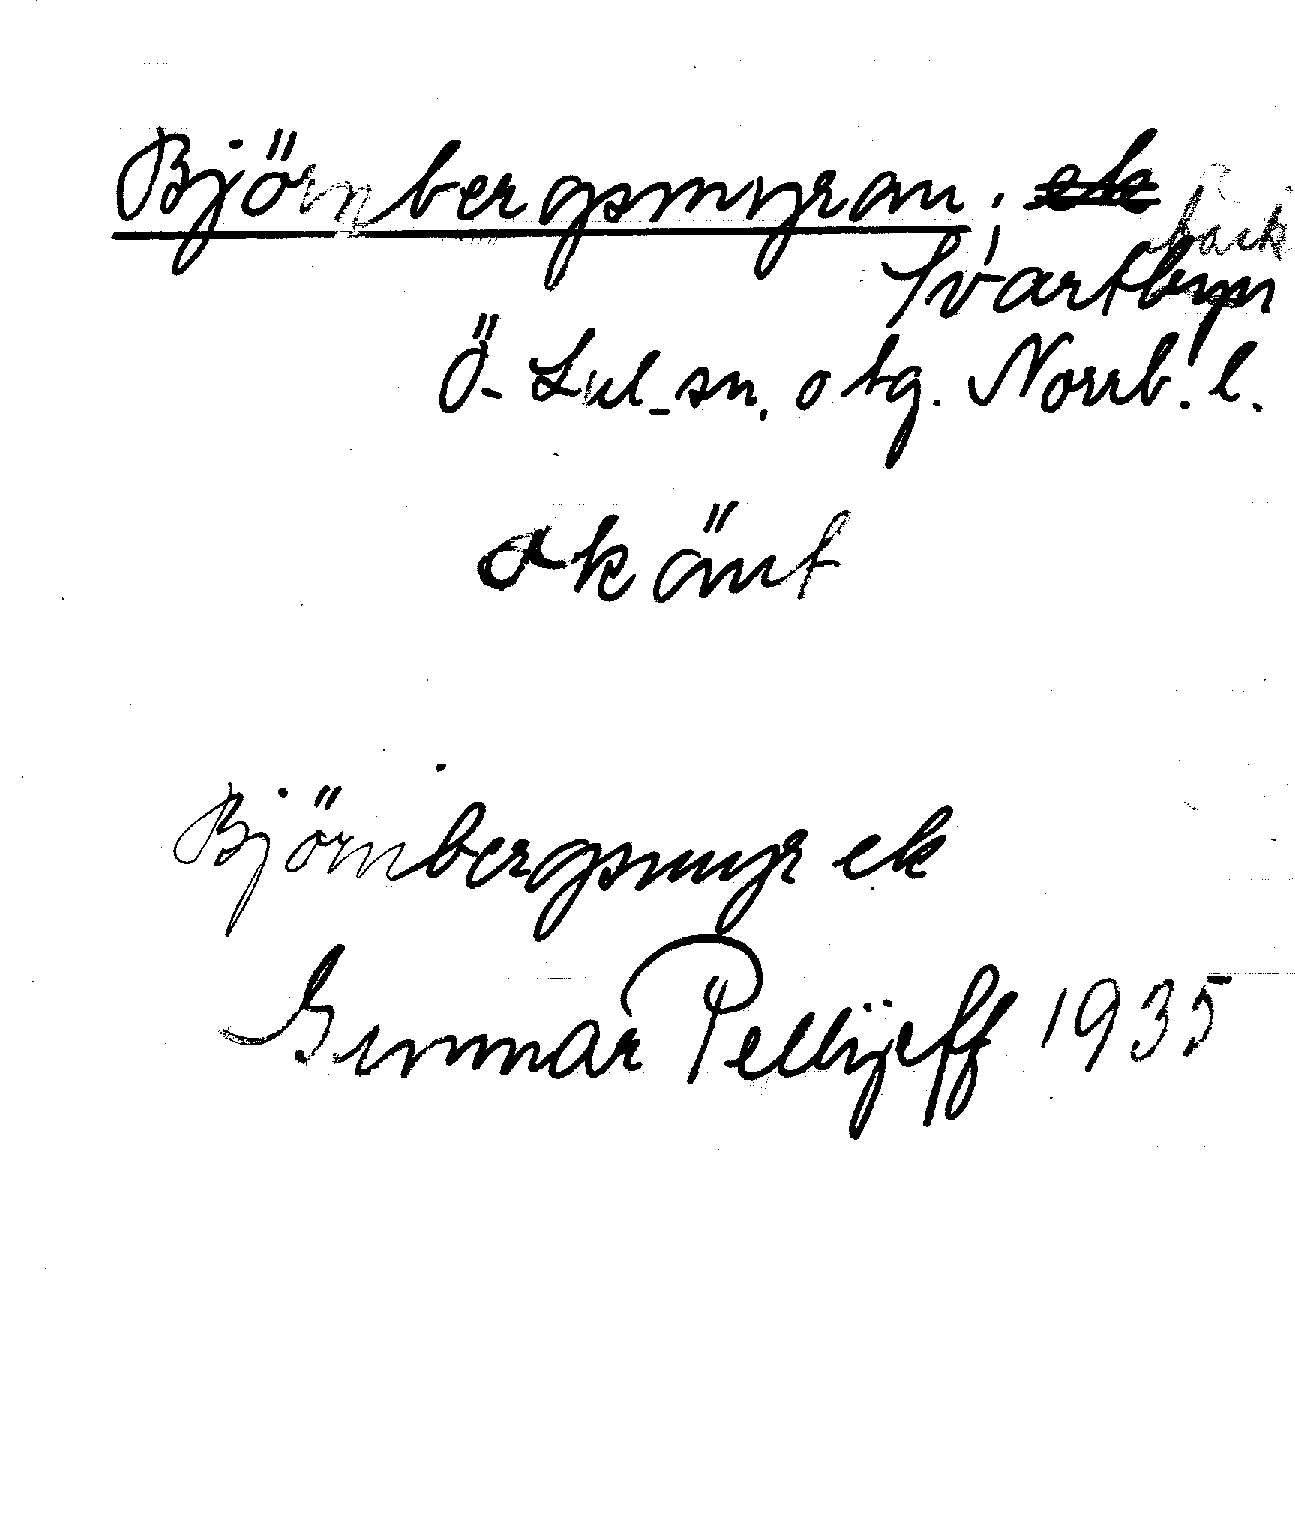 Björnbergsmyran, ek
bäck
Svartbyn
Ö. Lul. sn. o tg. Norrb. l.
okänt
Björnbergsmyr ek
Gunnar Pellijeff 1935